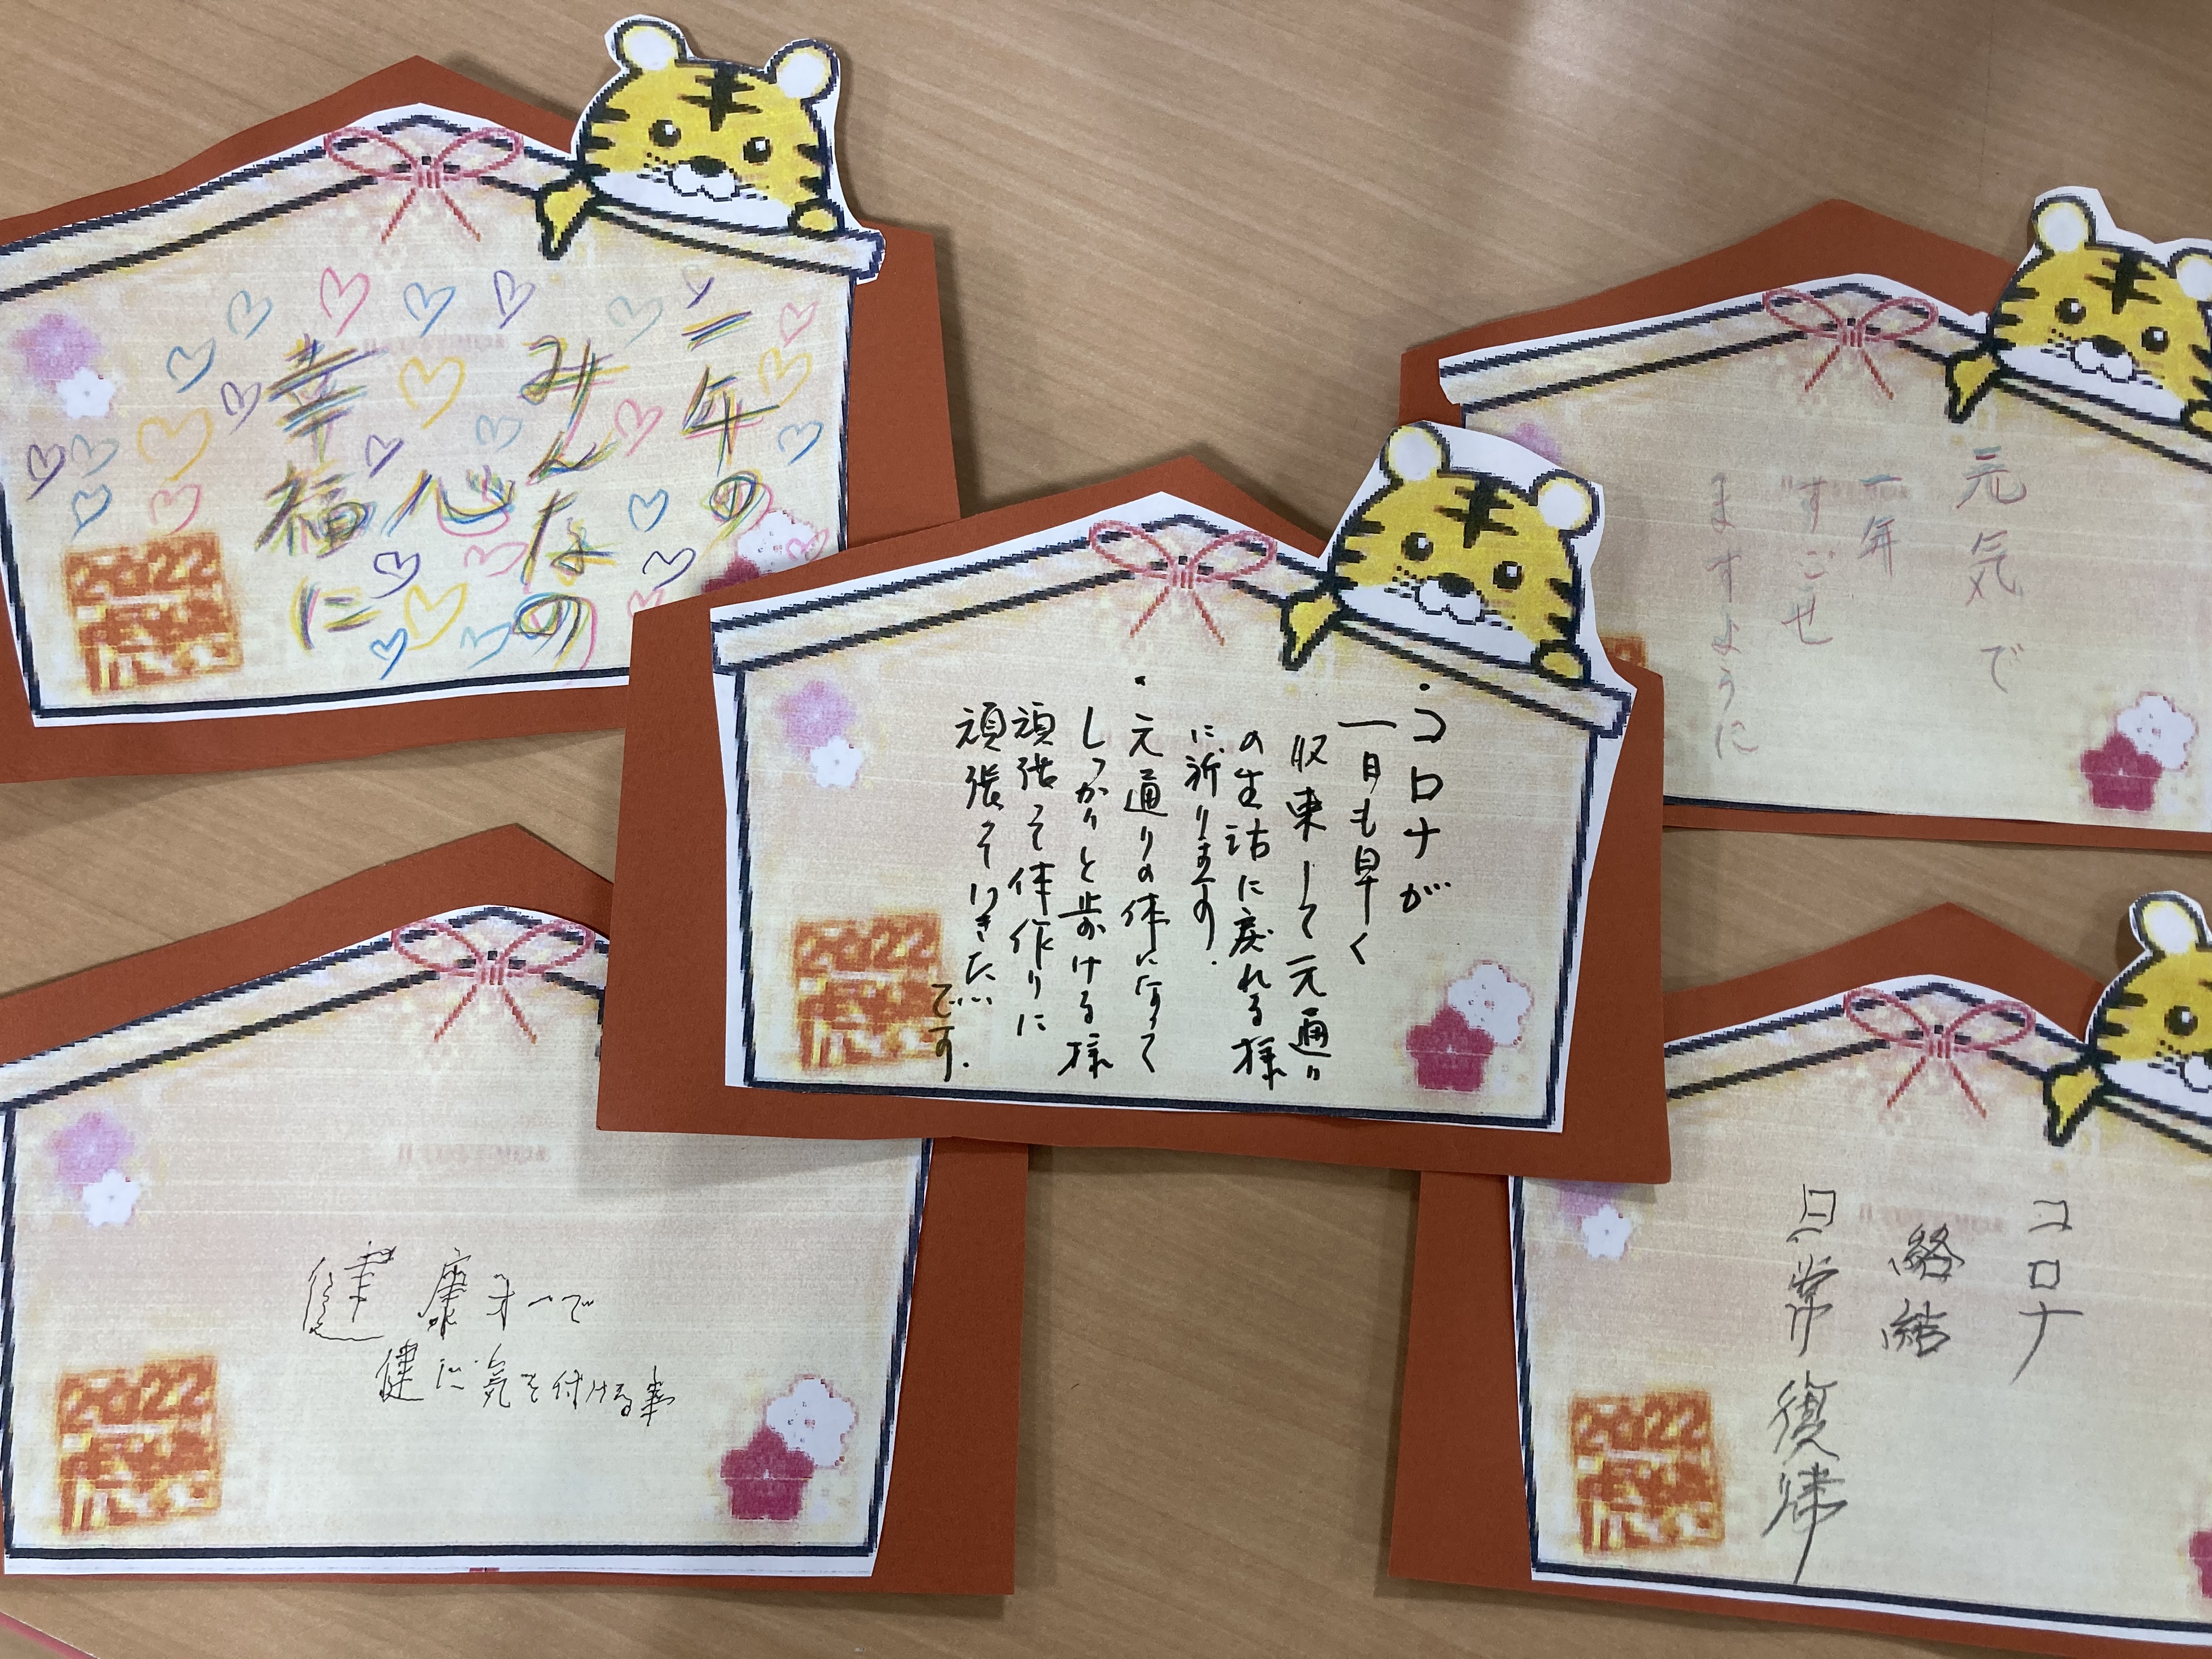 二年の
みんなの
心
幸福に
2022
元気で
一年
すごせ
ますように
・コロナが
一日も早く
収束して元通り
の生活に戻れる様
に祈ります.
・元通りの体になって
しっかりと歩ける様
頑張って体作りに
頑張っていきたい
です.
2022
健康才一で
健に気を付ける事
2022
コロナ
終結
日常復帰
2022